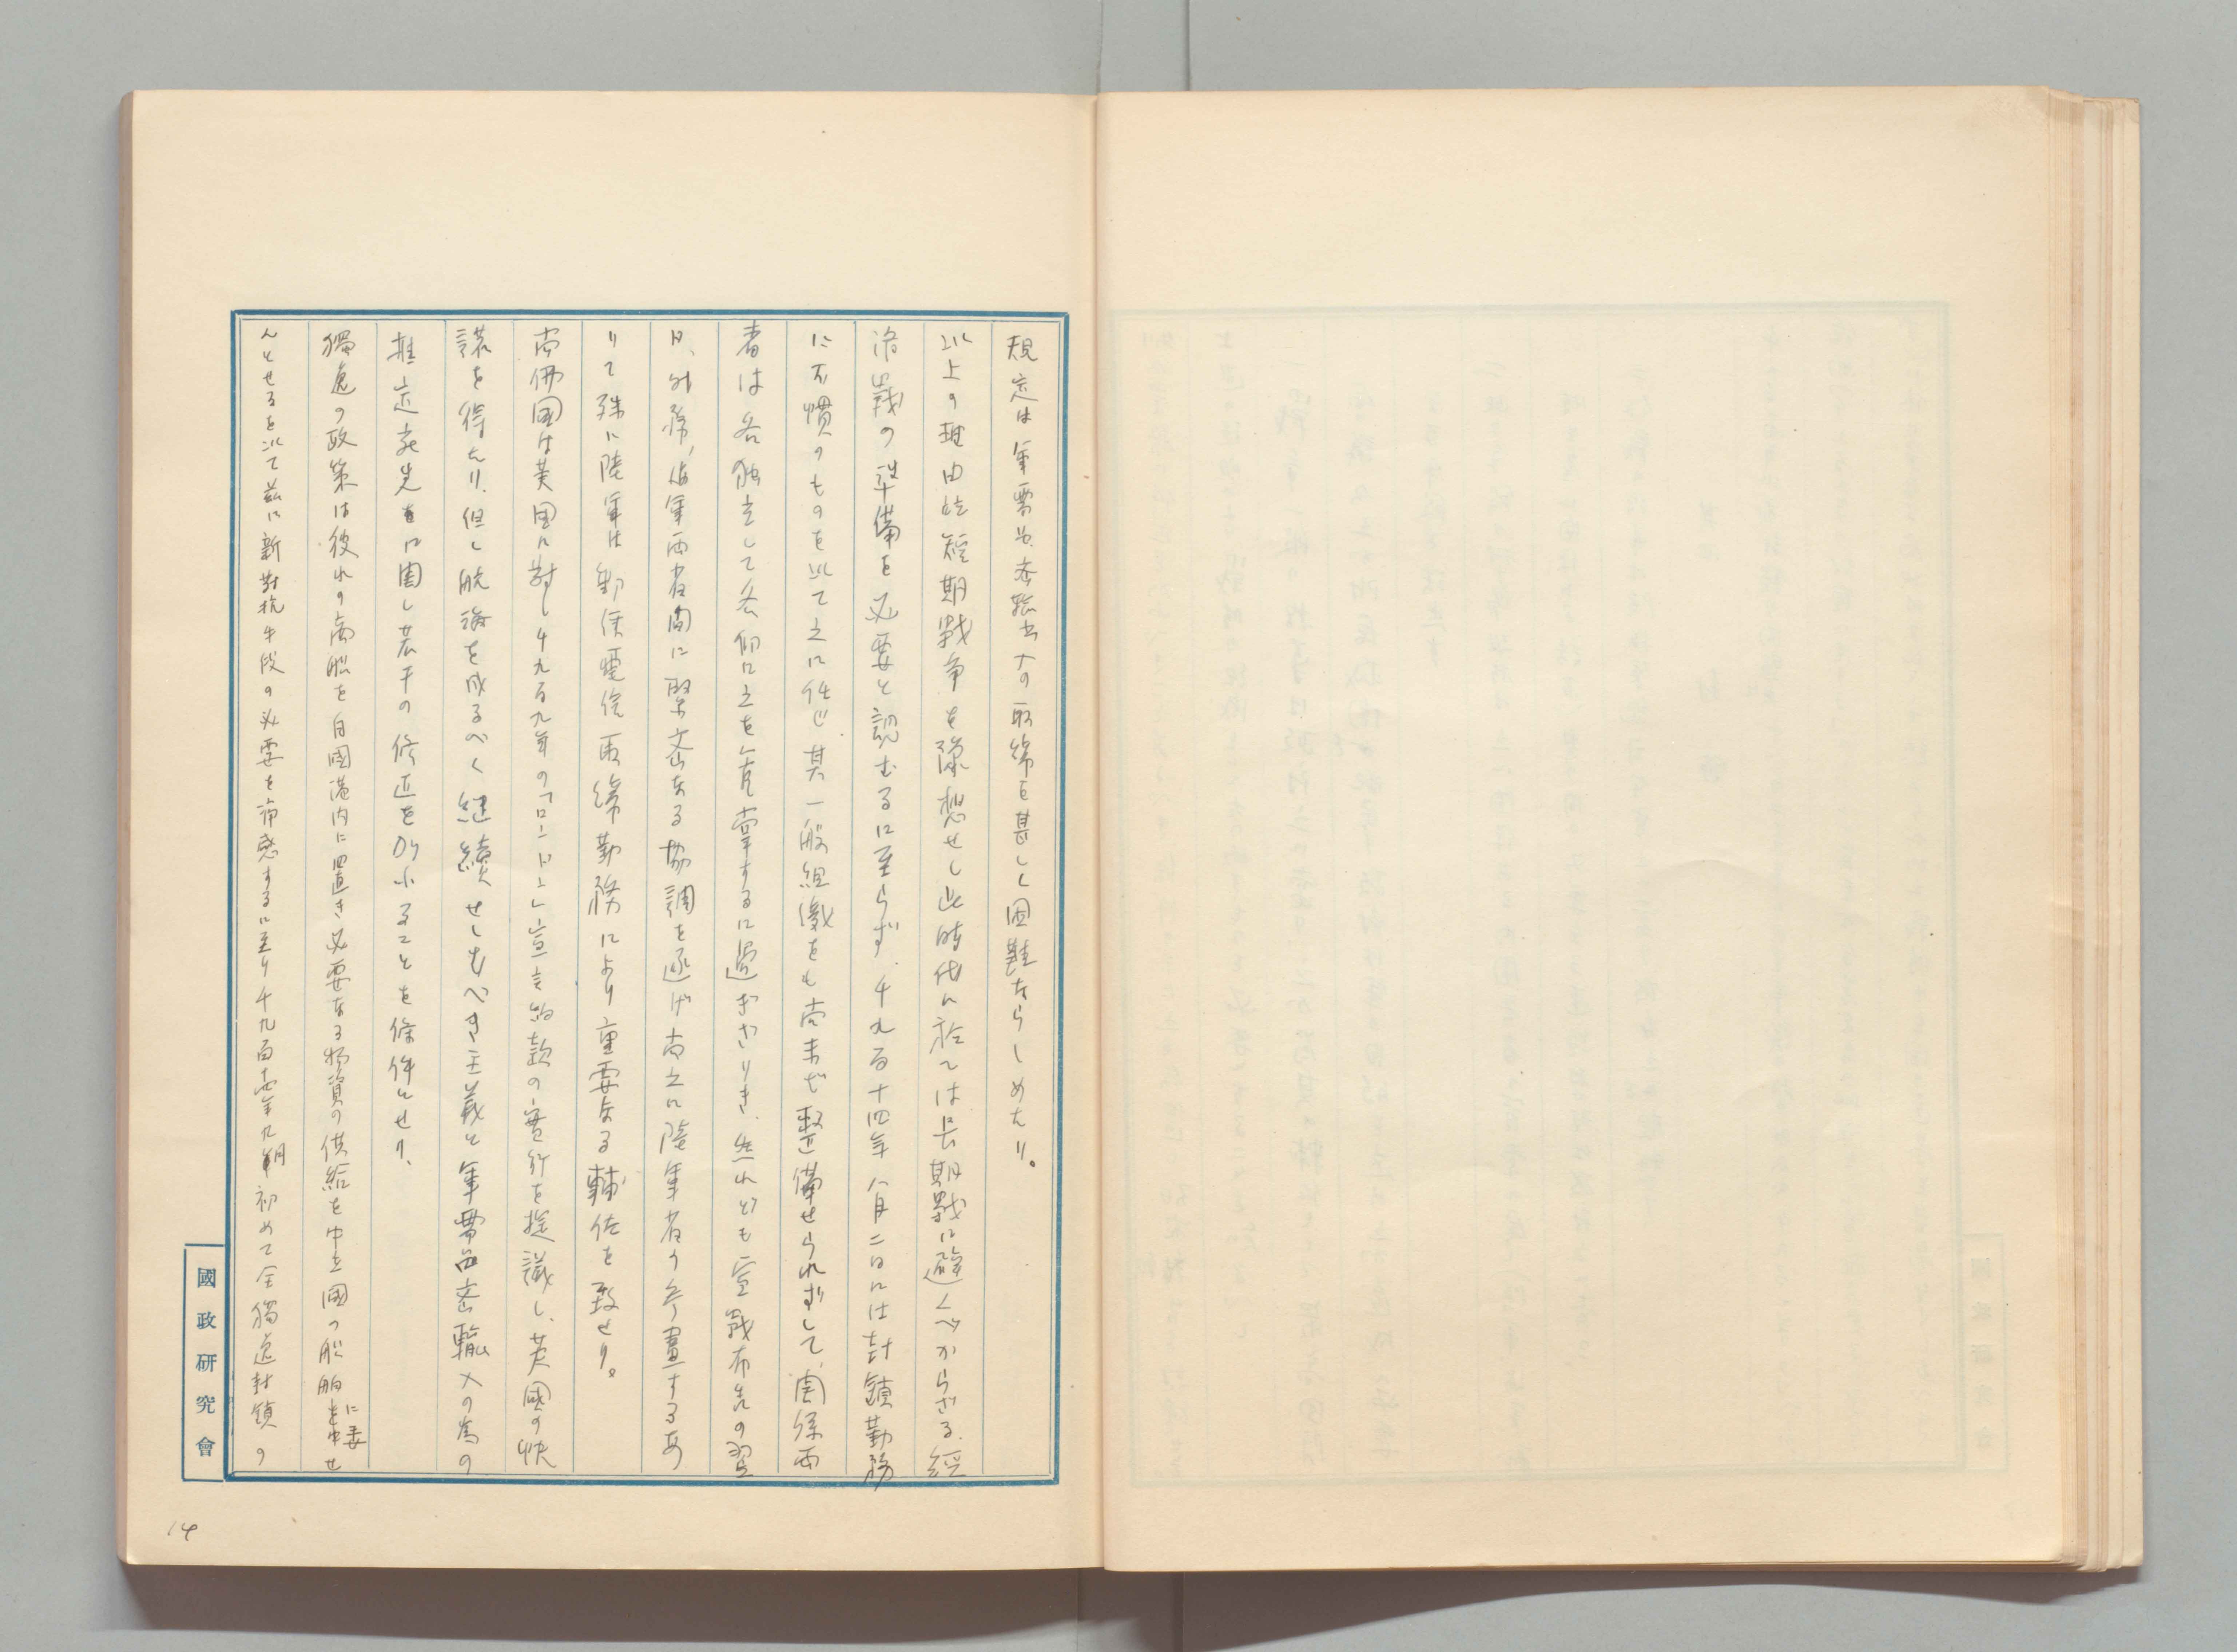 規定は軍需品密輸出入の取締を甚しく困難ならしめたり。
以上の理由に短期戦争を豫想せし此時代に於ては長期戰に避くべからざる経
済戰の準備を必要と認むるに至らず、千九百十四年八月二日には封鎖勤務
に不慣のものを以て之に任じ其一般組織をも尚未だ整備せられずして、関係両
者は各独立して各個に之を管掌するに過ぎざりき、然れども宣戰布告の翌
日、外務、海軍両省間に緊密なる協調を遂げ尚之に陸軍省の参畫するあ
りて殊に陸軍は郵便電信取締勤務により重要なる輔佐を致せり。
尚佛國は英国に対し千九百九年の「ロンドン」宣言約款の實行を提議し、英國の快
諾を得たり、但し航海を成るべく継續せしむべき主義と軍需品密輸入の為の
推定宛先とに関し若干の修正を加ふることを條件とせり、
獨逸の政策は彼れの商船を自國港内に置き必要なる物資の供給を中立國の船舶に委せ
んとせるを以て茲に新対抗手段の必要を痛感するに至り千九百十四年九月初めて全獨逸封鎖の
國政研究會
14